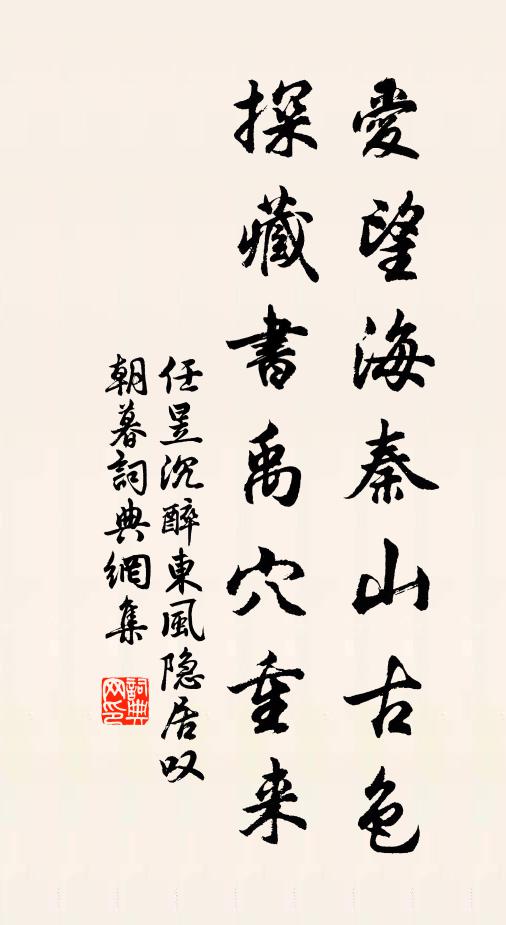 愛望海秦山古色
探藏書禹穴重来
任昱沉醉東風隐居叹
朝暮詞典網集
詞典网印